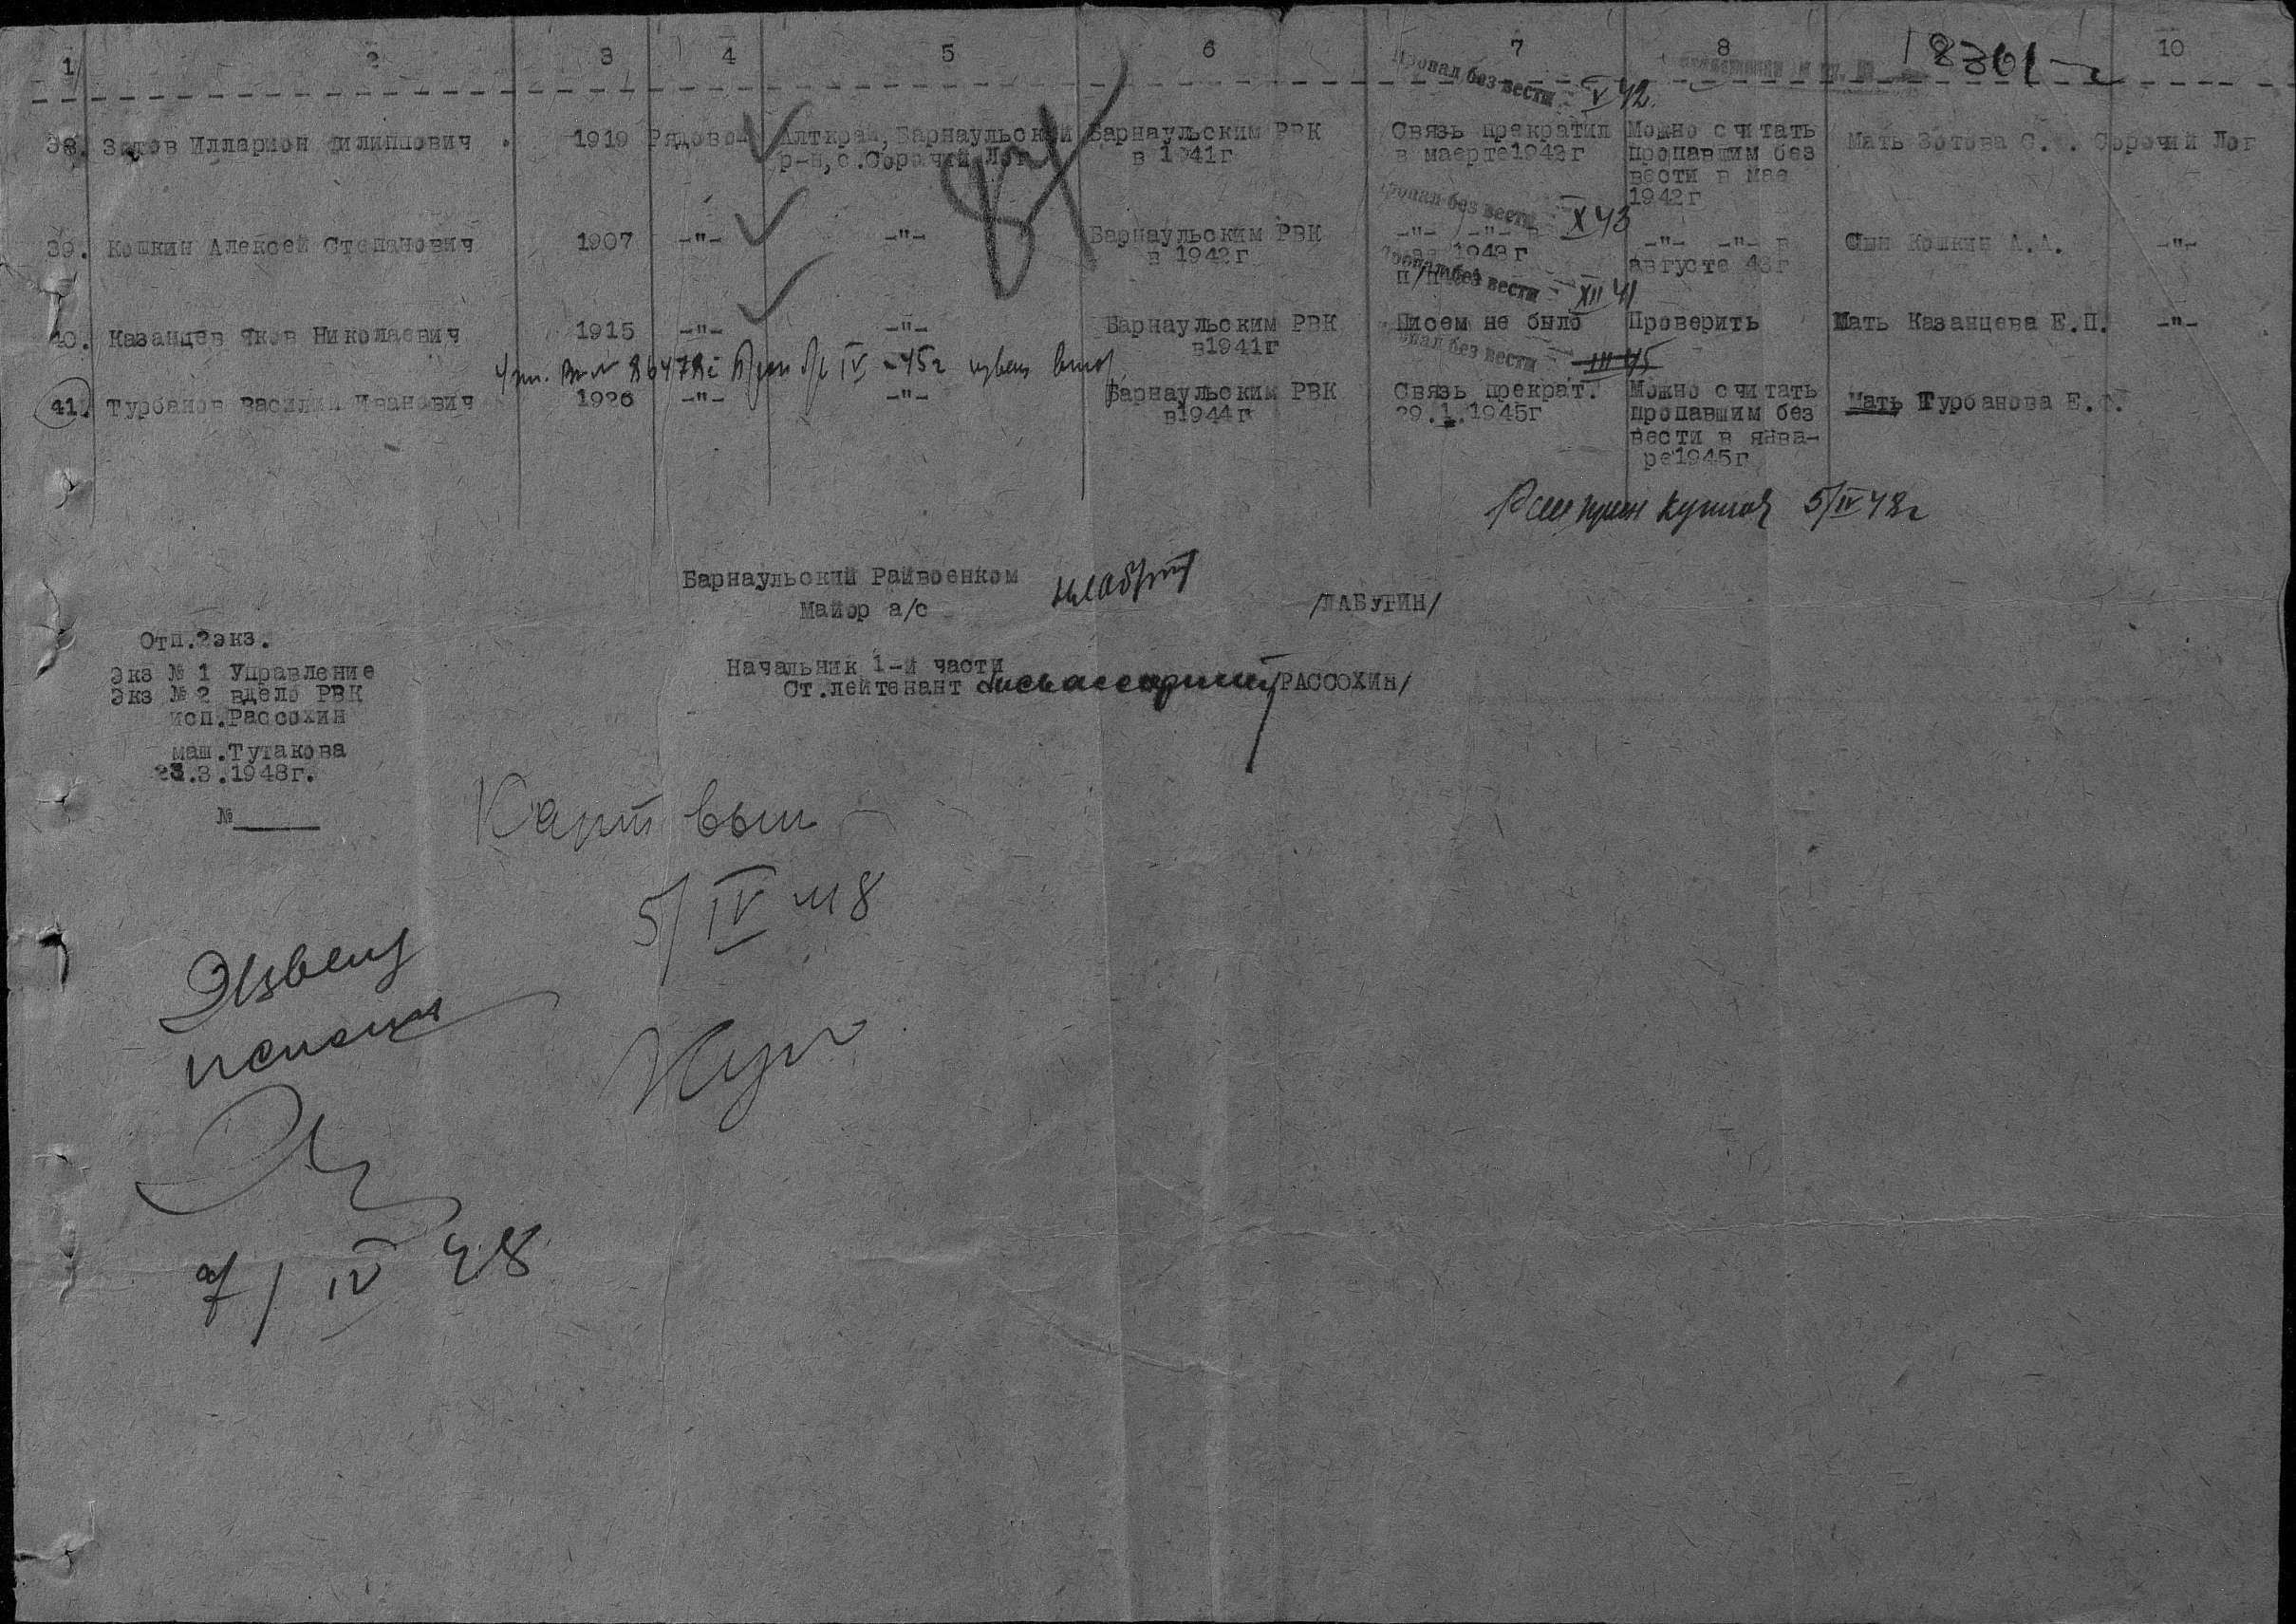 1 2 3 4 5 6 7 8 10
18361
Пропал без вести V 42.
38. Зотов Илларион Филиппович 1919 Рядовой Алткрай, Барнаульский Барнаульским РВК Связь прекратил Можно считать Мать Зотова С. Сорочий Лог
р-н, с.Сорочий Лог в 1941г в маерте1942г пропавшим без
вести в мае
1942г
Пропал без вести X 43
39. Кошкин Алексей Степанович 1907 -"- -"- Барнаульским РВК -"- -"- в -"- -"- в Сын Кошкин А.А. -"-
в 1942г 1943г августе 43г
Пропал без вести XII 41
40. Казанцев Яков Николаевич 1915 -"- -"- Барнаульским РВК Писем не было Проверить Мать Казанцева Е.П. -"-
в1941г
86478 IV -45г
без вести III 45
41. Турбанов Василий Иванович 1926 -"- -"- Барнаульским РВК Связь прекрат. Можно считать Мать Турбанова Е.
в1944г 29.1.1945г пропавшим без
вести в янва-
ре1945г
5/IV 48г
Барнаульский Райвоенком
Майор а/с /ЛАБУТИН/
Начальник 1-й части
Ст.лейтенант /РАССОХИН/
Отп.2экз.
Экз № 1 Управление
Экз № 2 вдело РВК
исп.Рассохин
маш.Тутакова
23.3.1948г.
№
Карт вып
5/IV 48
Извещ
7/IV 48